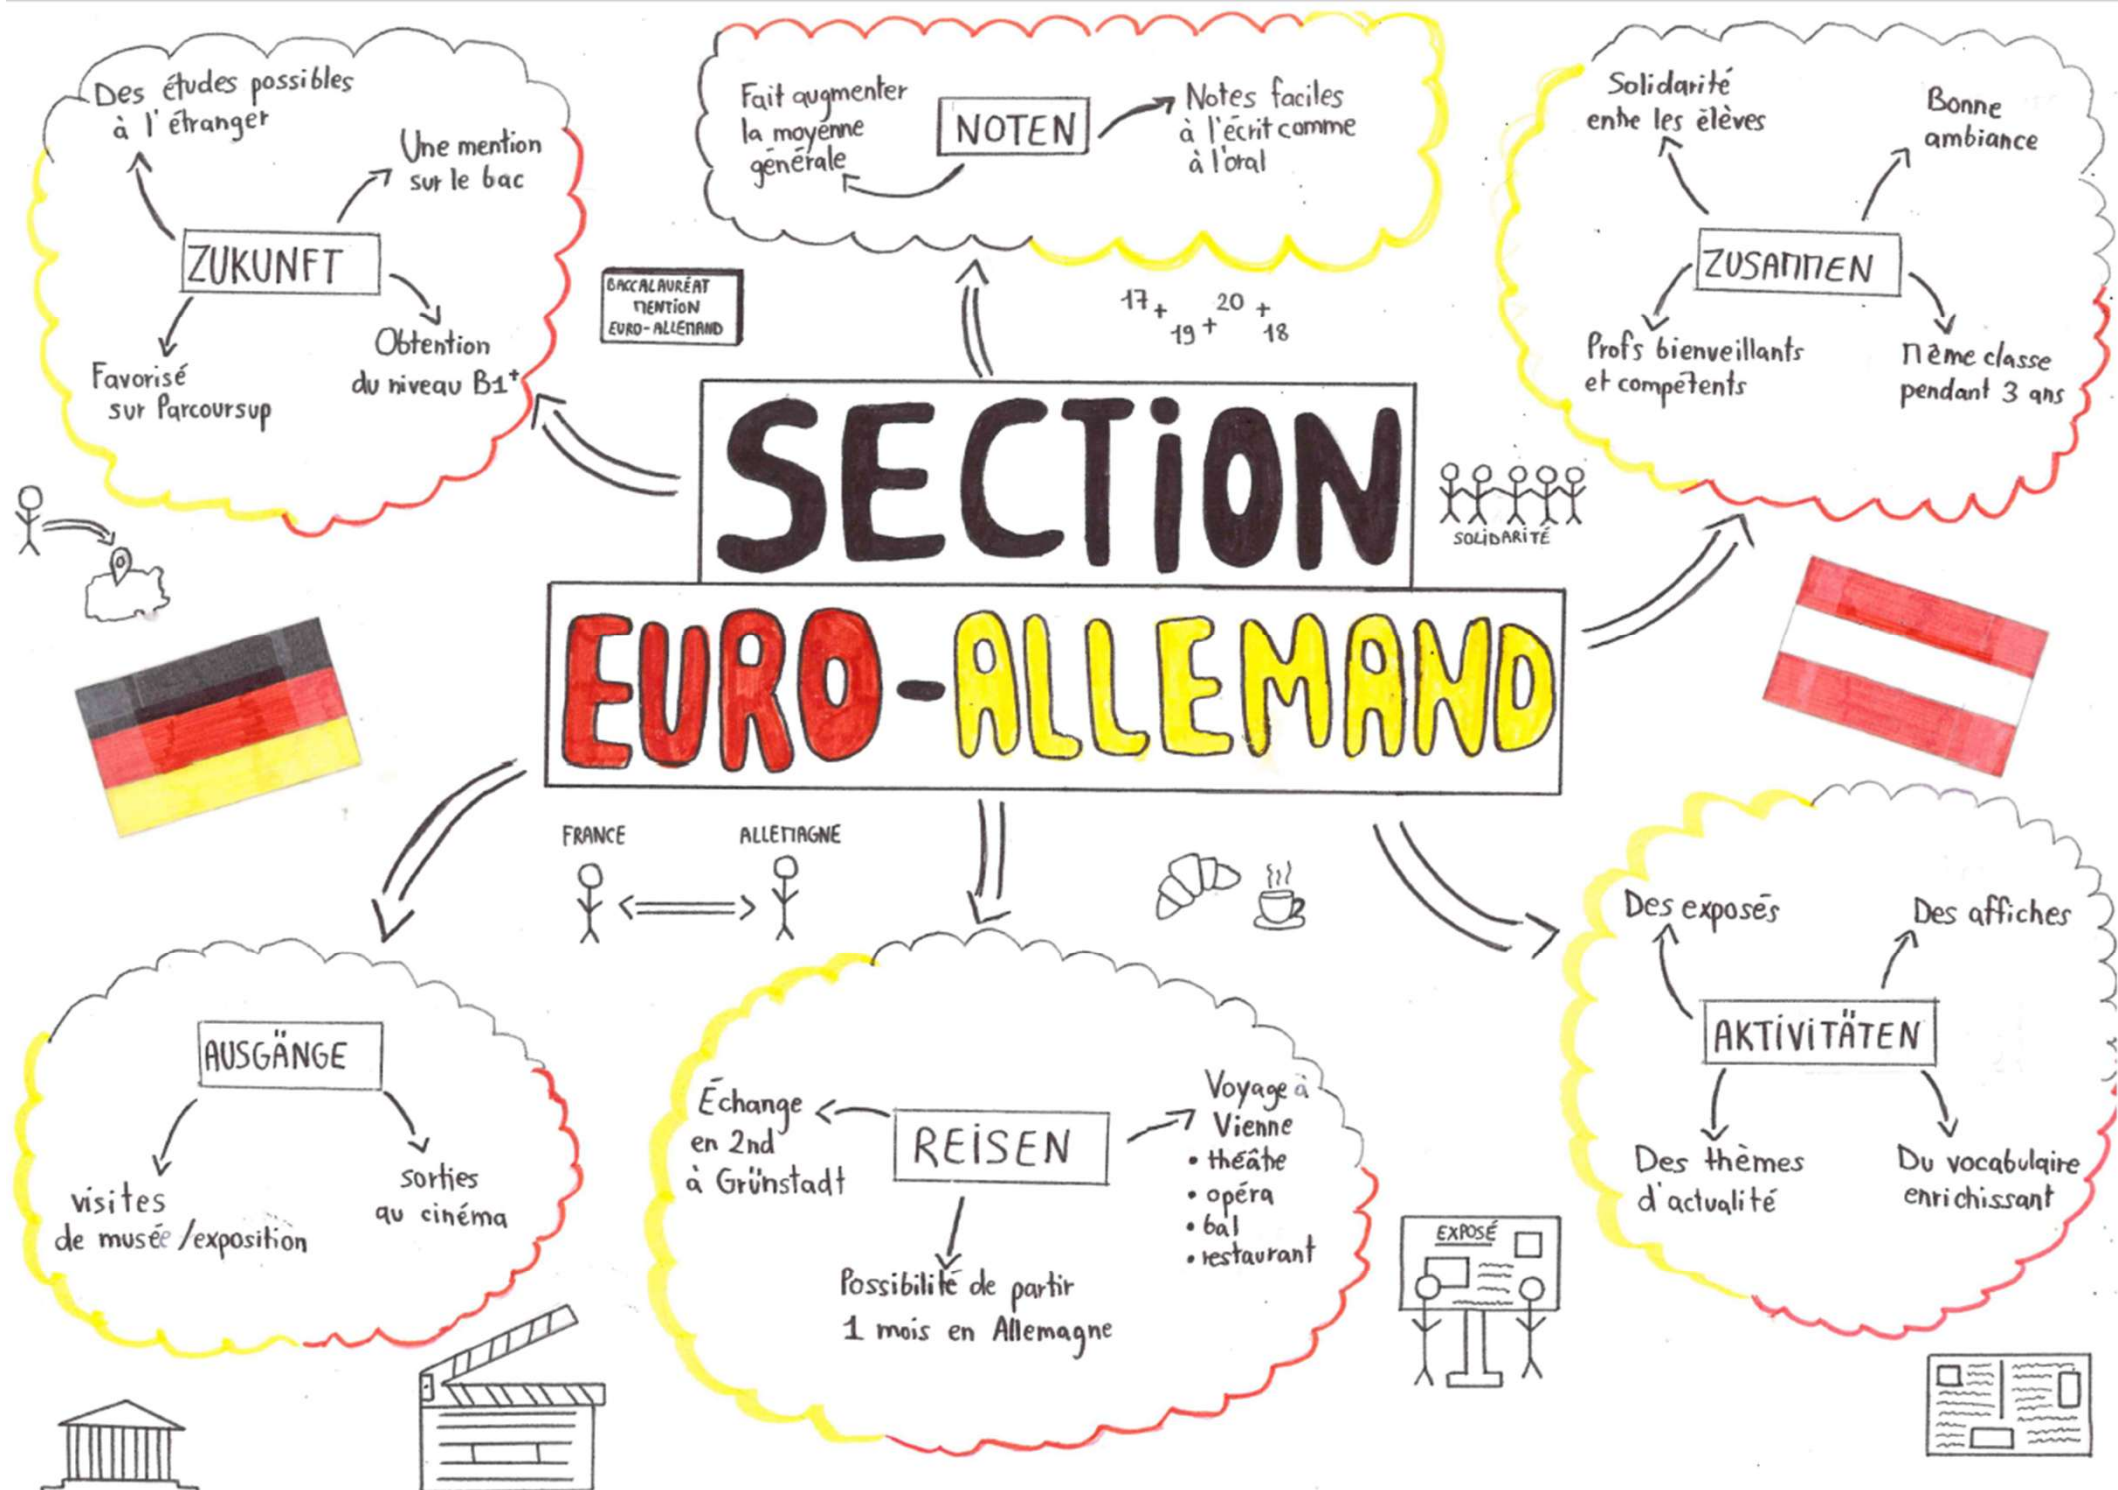 Des études possibles
à l'étranger
Une mention
sur le bac
ZUKUNFT
Favorisé
sur Parcoursup
Obtention
du niveau B1+
Fait augmenter
la moyenne
générale
NOTEN
Notes faciles
à l'écrit comme
à l'oral
Solidarité
entre les élèves
Bonne
ambiance
ZUSAMMEN
Profs bienveillants
et compétents
Même classe
pendant 3 ans
BACCALAURÉAT
MENTION
EURO-ALLEMAND
17 +
19 +
20 +
18
SECTION
EURO-ALLEMAND
SOLIDARITÉ
FRANCE
ALLEMAGNE
AUSGÄNGE
visites
de musée/exposition
sorties
au cinéma
REISEN
Échange
en 2nd
à Grünstadt
Voyage à
Vienne
• théâtre
• opéra
• bal
• restaurant
Possibilité de partir
1 mois en Allemagne
Des exposés
Des affiches
AKTIVITÄTEN
Des thèmes
d'actualité
Du vocabulaire
enrichissant
EXPOSÉ